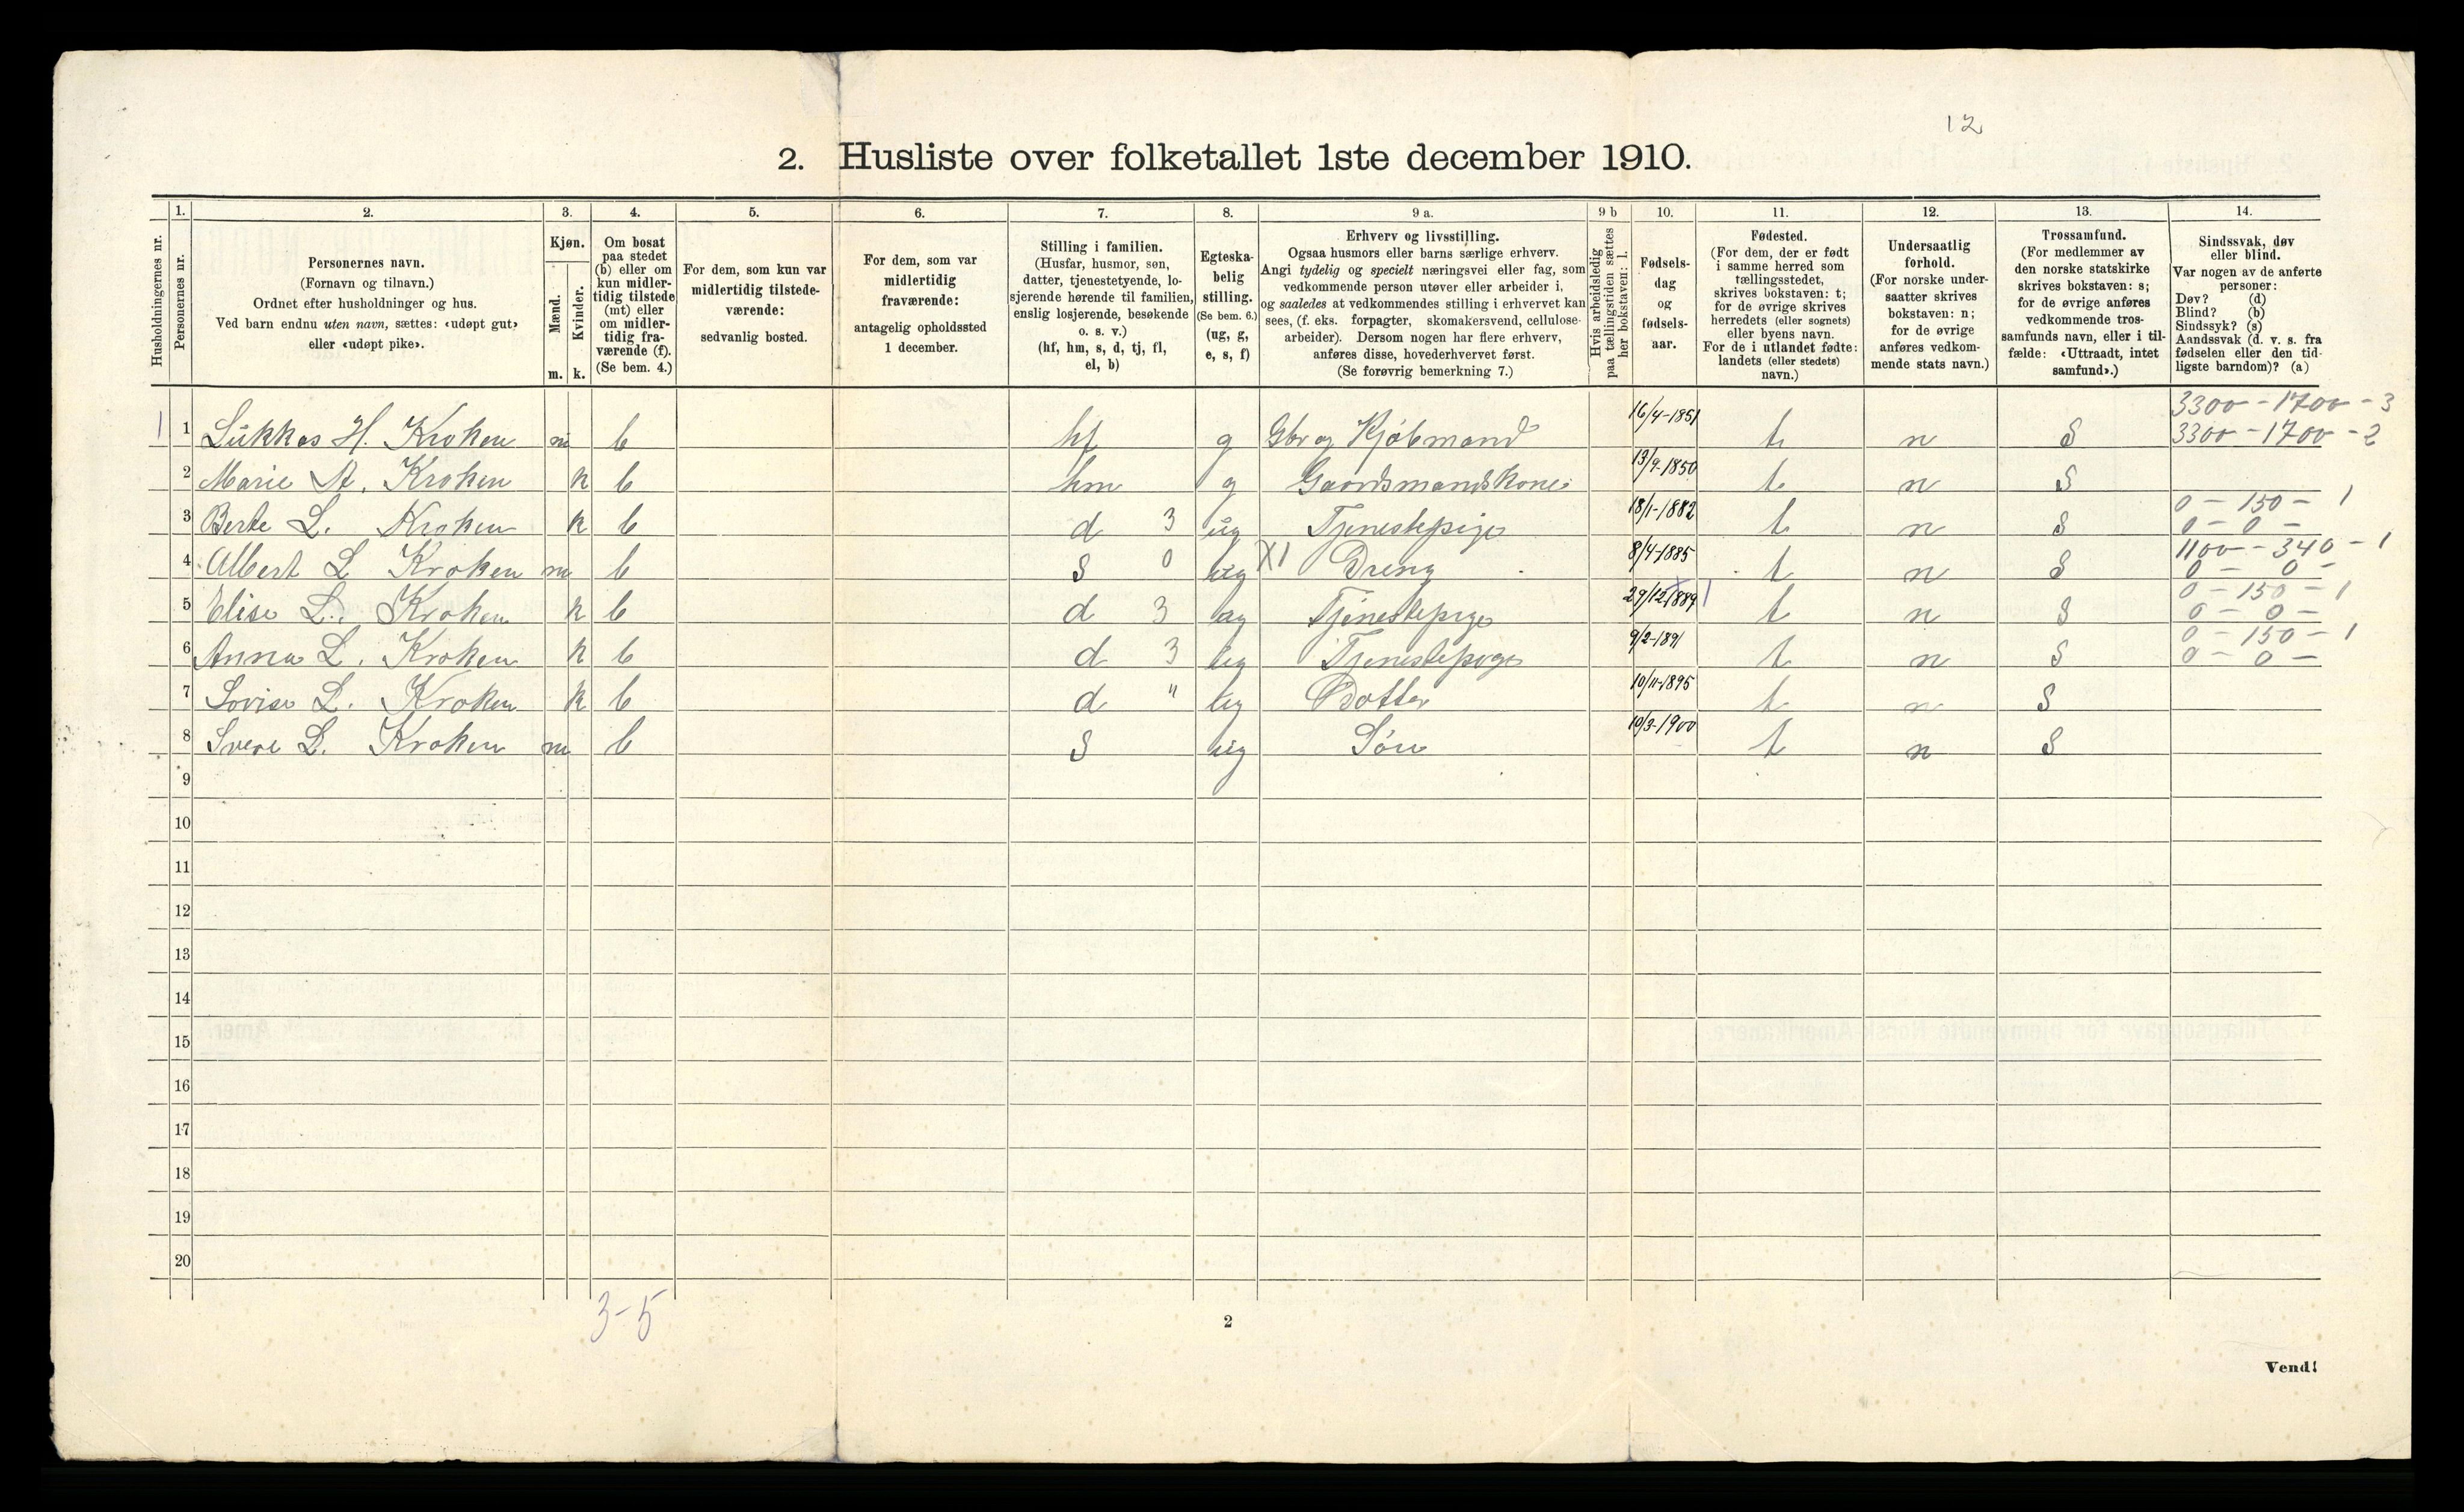 12
2. Husliste over folketallet 1ste december 1910.
Husholdningernes nr.
1.
Personernes nr.
2.
Personernes navn.
(Fornavn og tilnavn.)
Ordnet efter husholdninger og hus.
Ved barn endnu uten navn, sættes: «udøpt gut»
eller «udøpt pike».
3.
Kjøn.
Mænd.
Kvinder.
m.
k.
4.
Om bosat
paa stedet
(b) eller om
kun midler-
tidig tilstede
(mt) eller
om midler-
tidig fra-
værende (f).
(Se bem. 4.)
5.
For dem, som kun var
midlertidig tilstede-
værende:
sedvanlig bosted.
6.
For dem, som var
midlertidig
fraværende:
antagelig opholdssted
1 december.
7.
Stilling i familien.
(Husfar, husmor, søn,
datter, tjenestetyende, lo-
sjerende hørende til familien,
enslig losjerende, besøkende
o. s. v.)
(hf, hm, s, d, tj, fl,
el, b)
8.
Egteska-
belig
stilling.
(Se bem. 6.)
(ug, g,
e, s, f)
9 a.
Erhverv og livsstilling.
Ogsaa husmors eller barns særlige erhverv.
Angi tydelig og specielt næringsvei eller fag, som
vedkommende person utøver eller arbeider i,
og saaledes at vedkommendes stilling i erhvervet kan
sees, (f. eks. forpagter, skomakersvend, cellulose-
arbeider). Dersom nogen har flere erhverv,
anføres disse, hovederhvervet først.
(Se forøvrig bemerkning 7.)
9 b
Hvis arbeidsledig
paa tællingstiden sættes
her bokstaven: l.
10.
Fødsels-
dag
og
fødsels-
aar.
11.
Fødested.
(For dem, der er født
i samme herred som
tællingsstedet,
skrives bokstaven: t;
for de øvrige skrives
herredets (eller sognets)
eller byens navn.
For de i utlandet fødte:
landets (eller stedets)
navn.)
12.
Undersaatlig
forhold.
(For norske under-
saatter skrives
bokstaven: n;
for de øvrige
anføres vedkom-
mende stats navn.)
13.
Trossamfund.
(For medlemmer av
den norske statskirke
skrives bokstaven: s;
for de øvrige anføres
vedkommende tros-
samfunds navn, eller i til-
fælde: «Uttraadt, intet
samfund».)
14.
Sindssvak, døv
eller blind.
Var nogen av de anførte
personer:
Døv? (d)
Blind? (b)
Sindssyk? (s)
Aandssvak (d. v. s. fra
fødselen eller den tid-
ligste barndom)? (a)
3300 - 1700 - 3
1 1 Lukkas H. Kroken m b hf g Gbr og Kjøbmand 16/4-1851 t n S 3300 - 1700 - 2
2 Marie A. Kroken k b hm g Gaardsmandskone 13/9-1850 t n S
0 - 150 - 1
3 Berte L. Kroken k b d 3 ug Tjenestepige 18/1-1882 t n S 0 - 0 -
1100 - 340 - 1
4 Albert L Kroken m b S 0 ug X1 Dreng 8/4-1885 t n S 0 - 0 -
0 - 150 - 1
5 Elise L. Kroken k b d 3 ug Tjenestepige 29/12 1889 t n S 0 - 0 -
0 - 150 - 1
6 Anna L. Kroken k b d 3 ug Tjenestepige 9/2-1891 t n S 0 - 0 -
7 Lovise L. Kroken k b d " ug Datter 10/11-1895 t n S
8 Sverre L. Kroken m b S ug Søn 10/3-1900 t n S
9
10
11
12
13
14
15
16
17
18
19
20
3-5
2
Vend!